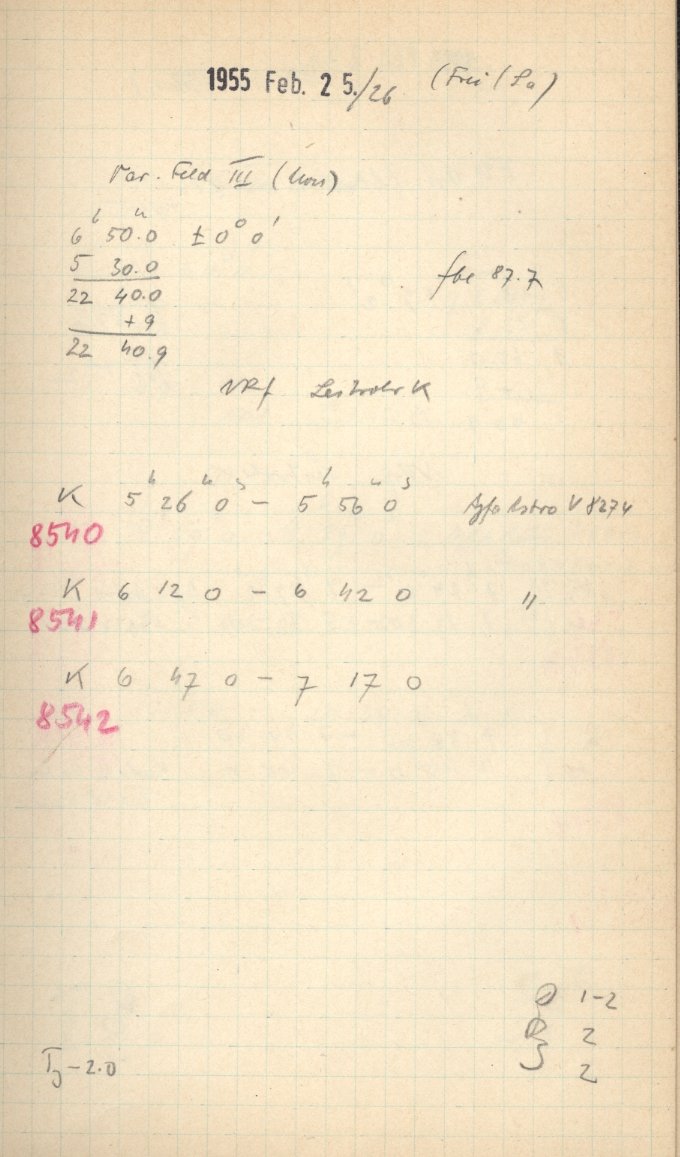 1955 Feb. 25./26 (Frei/Sa)
Var. Feld III (Mon)
6h 50.0m ±0° 0'
5 30.0
22 40.0
+9
22 40.9
fbe 87.7
Leitrohr K
K 5h 26m 0s – 5h 56m 0s Agfa Astro V 8274
8540
K 6 12 0 – 6 42 0 "
8541
K 6 47 0 – 7 17 0
8542
1-2
2
2
T -2.0